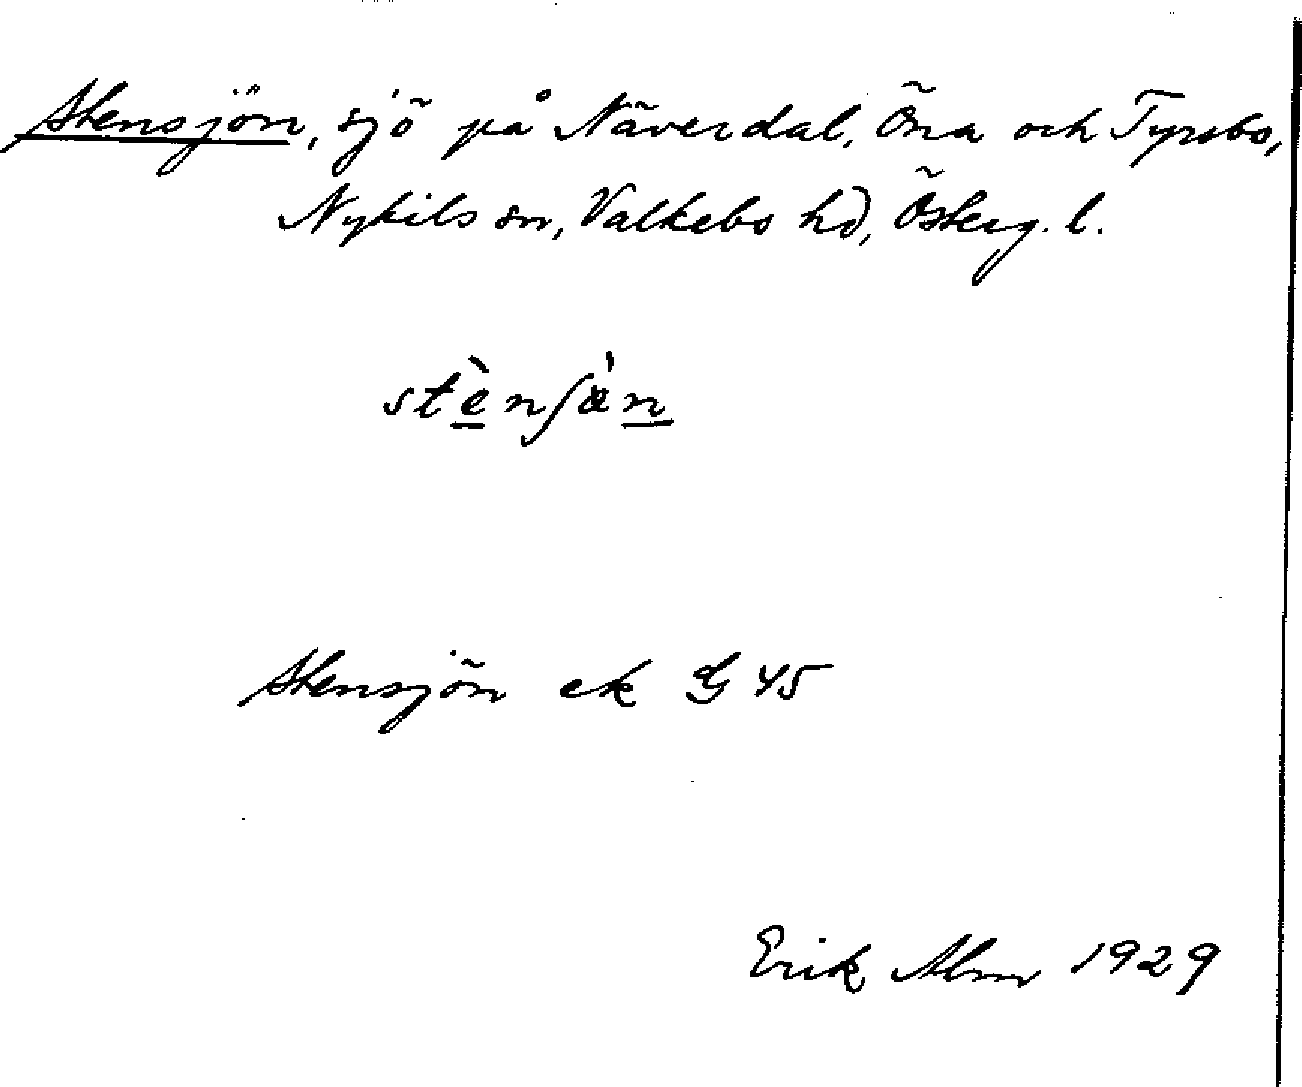 Stensjön, sjö på Näverdal, Öna och Tyrsbo,
Nykils sn, Valkebo hd, Österg. l.
stènʃæ̀n
Stensjön ek G 45
Erik Alm 1929